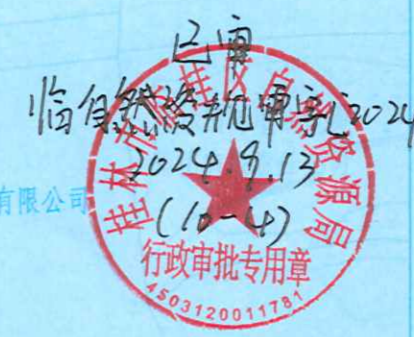 已审
临自然资规审字[2024
2024.9.13
(10-4)
有限公司
桂林市临桂区自然资源局
行政审批专用章
4503120011781